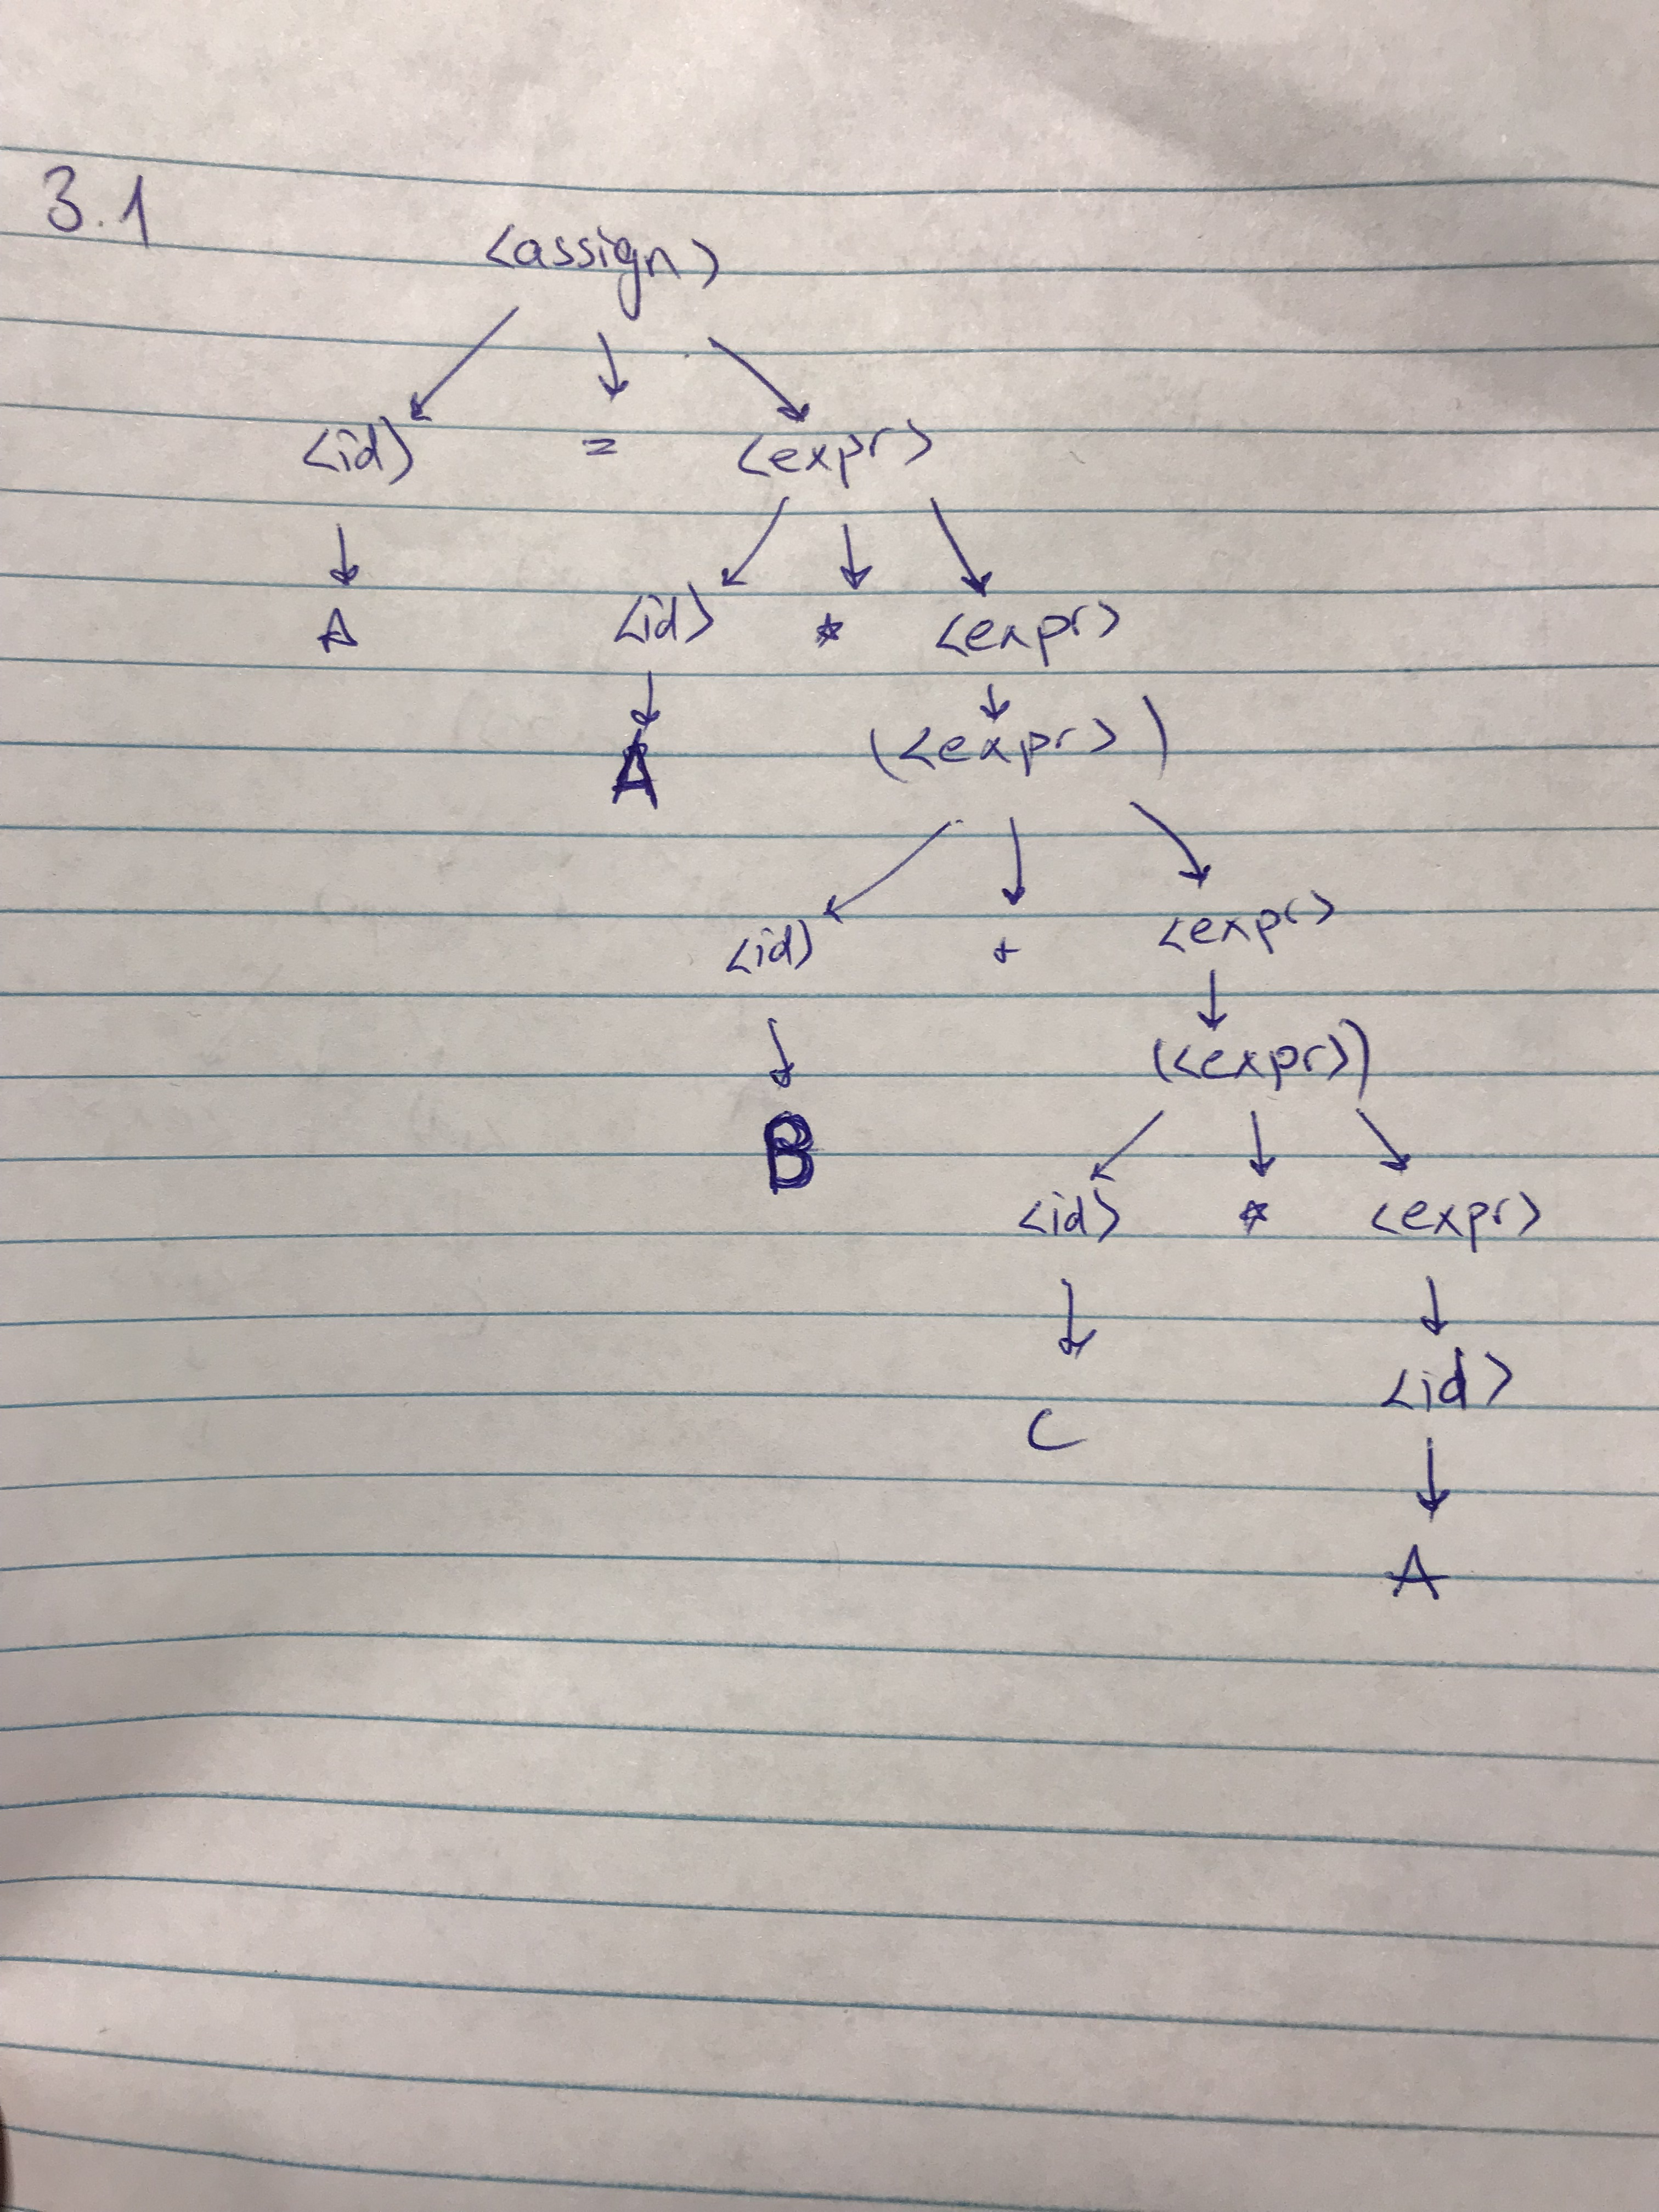 3.1
<assign>
<id> = <expr>
A <id> * <expr>
A (<expr>)
<id> + <expr>
(<expr>)
B
<id> * <expr>
<id>
C
A